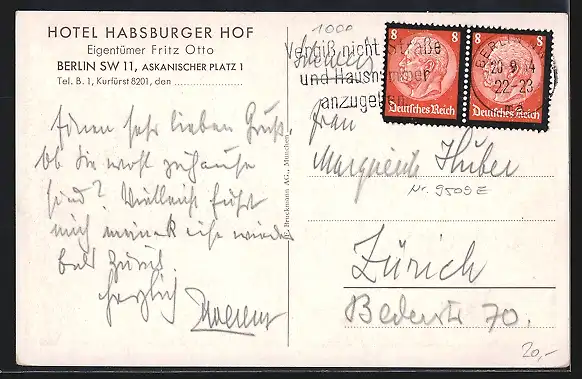 HOTEL HABSBURGER HOF
Eigentümer Fritz Otto
BERLIN SW 11, ASKANISCHER PLATZ 1
Tel. B. 1, Kurfürst 8201, den
Einen sehr lieben Gruß.
Ob Sie wohl zuhause
sind? Vielleicht führt
mich meine
bald Zürich.
herzlich
F. Bruckmann AG., München
1000
Vergiß nicht Straße
und Hausnummer
anzugeben
8 8
8 8
Deutsches Reich
Deutsches Reich
BERLIN
20 9 34
22-23
Frau
Marguerite Huber
Nr. 9509E
Zürich
Bederstr 70.
20,-